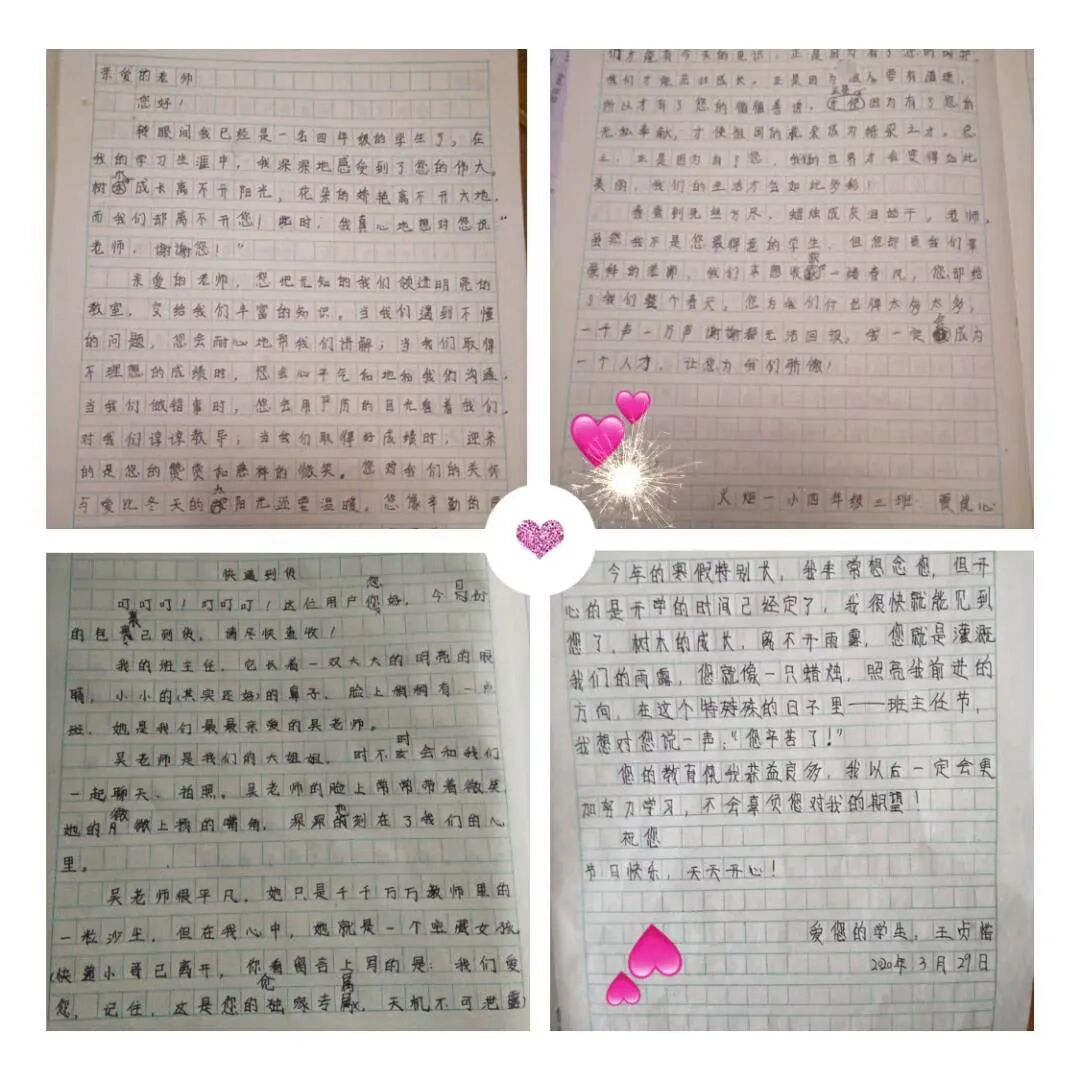 亲爱的老师
您好！
转眼间我已经是一名四年级的学生了，在
我的学习生涯中，我深深地感受到了您的伟大。
树木成长离不开阳光，花朵的娇艳离不开大地，
而我们却离不开您！此时，我真心地想对您说“
老师，谢谢您！”
亲爱的老师，您把无知的我们领进明亮的
教室，交给我们丰富的知识。当我们遇到不懂
的问题，您会耐心地帮我们讲解；当我们取得
不理想的成绩时，您会心平气和地和我们沟通。
当我们做错事时，您会用严厉的目光看着我们，
对我们谆谆教导；当我们取得好成绩时，迎来
的是您的赞赏和慈祥的微笑。您对我们的关怀
与爱比冬天的阳光还要温暖。您像辛勤的
们才能有今天的见识，正是因为有了您的
我们才能茁壮成长，正是因为
所以才有了您的循循善诱，正是因为有了您的
无私奉献，才使祖国的花朵成为栋梁之才。老
正是因为有了您，我们的世界才会变得如此
美丽，我们的生活才会如此多彩！
春蚕到死丝方尽，蜡烛成灰泪始干。老师，
虽然我不是您最得意的学生，但您却是我们最
爱的老师，我们本想收获一缕春风，您却给
了我们整个春天。您为我们付出得太多太多，
一千声一万声谢谢都无法回报，我一定会成为
一个人才，让您为我们骄傲！
一小四年级三班
快递到货
叮叮叮！叮叮叮！这位用户您好，今日份
的包裹已到货，请尽快查收！
我的班主任，它长着一双大大的明亮的眼
睛，小小的(其实还好)的鼻子，脸上稍稍有一点
斑，她是我们最最亲爱的吴老师。
吴老师是我们的大姐姐，时不时会和我们
一起聊天、拍照。吴老师的脸上常常带着微笑，
她的微微上扬的嘴角，深深地刻在了我们的心
里。
吴老师很平凡，她只是千千万万教师里的
一粒沙尘，但在我心中，她就是一个宝藏女孩
(快递小哥已离开，你看留言上写的是：我们爱
您，记住，这是您的独家专属，天机不可泄露)
今年的寒假特别长，我非常想念您，但开
心的是开学的时间已经定了，我很快就能见到
您了，树木的成长，离不开雨露，您就是灌溉
我们的雨露，您就像一只蜡烛，照亮我前进的
方向，在这个特殊的日子里——班主任节，
我想对您说一声：“您辛苦了！”
您的教育使我获益良多，我以后一定会更
加努力学习，不会辜负您对我的期望！
祝您
节日快乐，天天开心！
爱您的学生：王贞
2020年3月29日